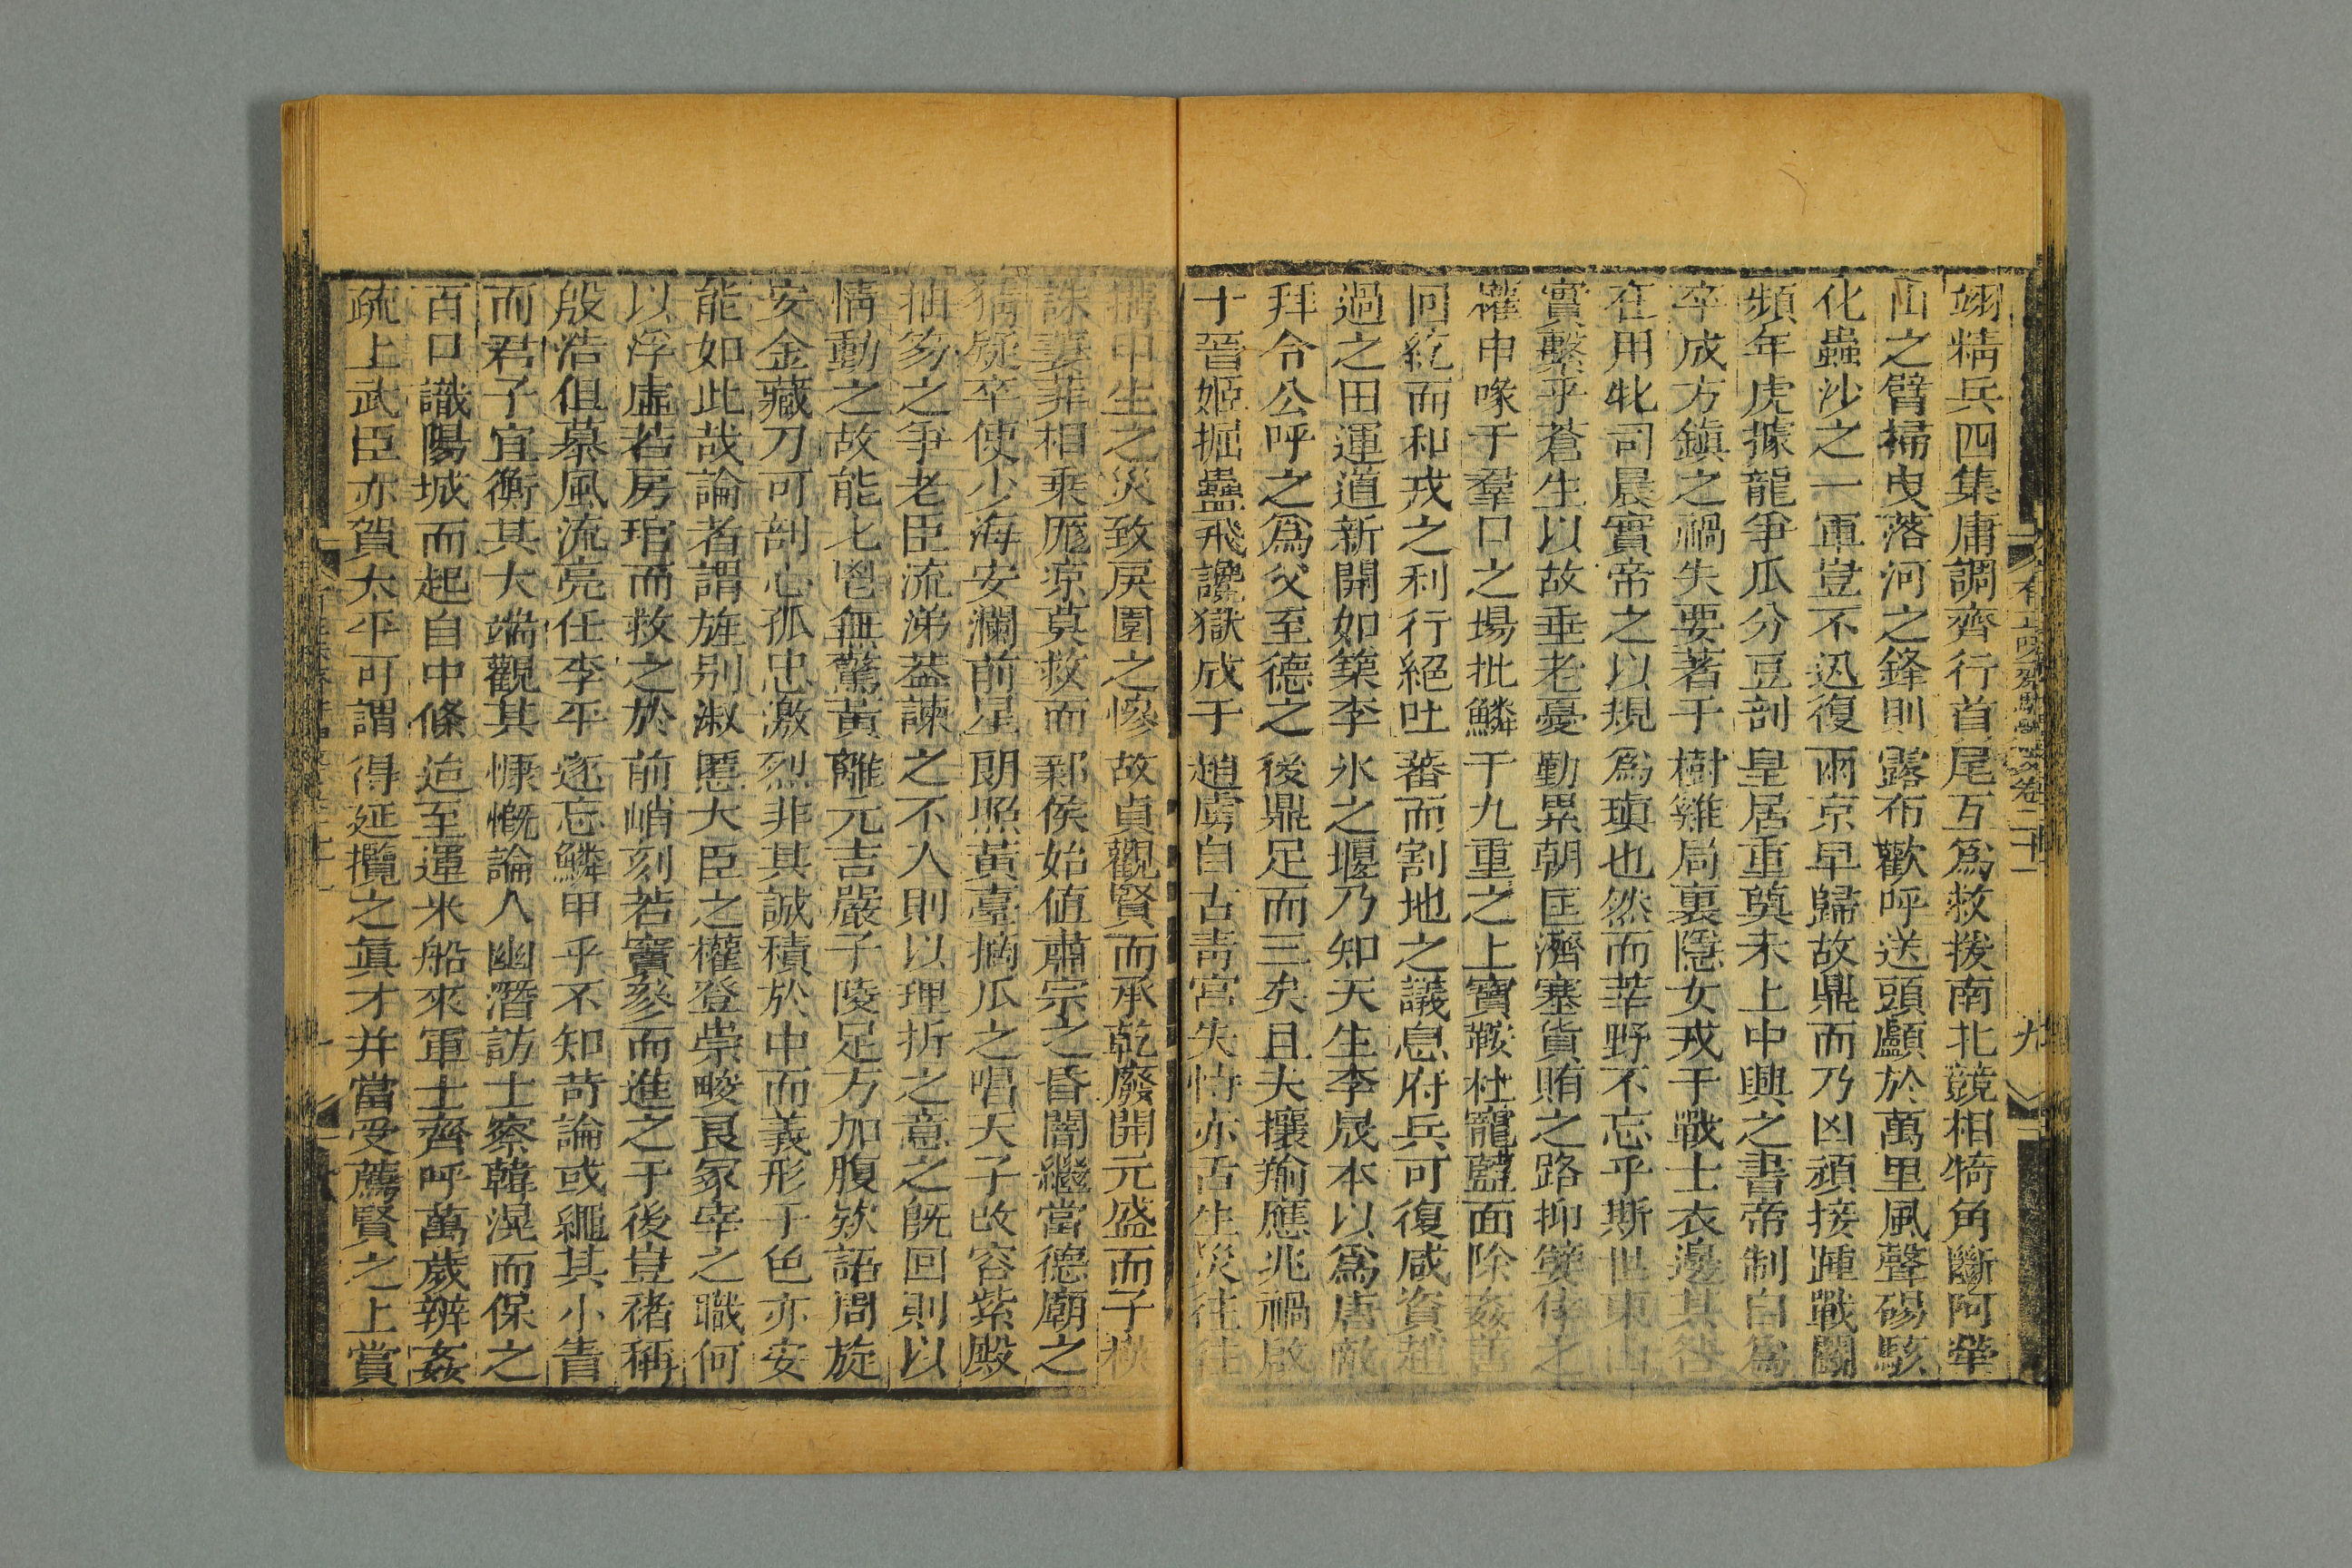 翊精兵四集庸調齊行首尾互爲救援南北競相犄角斷阿犖
山之臂掃曳落河之鋒則露布歡呼送頭顱於萬里風聲碭駭
化蟲沙之一軍豈不迅復兩京早歸故鼎而乃凶頑接踵戰鬬
頻年虎據龍爭瓜分豆剖皇居重奠未上中興之書帝制自爲
卒成方鎮之禍失要著于樹雞局裏隱女戎于戰士衣邊其咎
在用牝司晨實帝之以規爲瑱也然而莘野不忘乎斯世東山
實繫乎蒼生以故垂老憂勤累朝匡濟塞貨賄之路抑嬖倖之
權申喙于羣口之場批鱗于九重之上寶鞍杜寵藍面除姦
回紇而和戎之利行絕吐蕃而割地之議息府兵可復咸資
過之田運道新開如築李氷之堰乃知天生李晟本以爲唐敵
拜令公呼之爲父至德之後鼎足而三矣且夫攘羭應兆禍啟
于晉姬掘蠱飛讒獄成于趙虜自古青宮失恃亦古生災往往
申生之災致戾園之慘故貞觀賢而承乾廢開元盛而子
誅萋菲相乘厖凉莫救而鄴侯始値肅宗之昏闇繼當德廟之
猜疑卒使少海安瀾前星朗照黃臺摘瓜之唱天子改容紫殿
抽笏之爭老臣流涕葢諫之不入則以理折之意之旣回則以
情動之故能匕鬯無驚黃離元吉嚴子陵足方加腹欸語周旋
安金藏刀可剖心孤忠激烈非其誠積於中而義形于色亦安
能如此哉論者謂旌别淑慝大臣之權登崇畯艮冢宰之職何
以浮虛若房琯而救之於前峭刻若竇參而進之于後豈褚稱
殷浩但慕風流亮任李平遂忘鱗甲乎不知苛論或繩其小眚
而君子宜衡其大端觀其慷慨論人幽潛訪士察韓滉而保之
百口識陽城而起自中條迨至運米船來軍士齊呼萬歲辨姦
疏上武臣亦賀太平可謂得延攬之眞才并當受薦賢之上賞